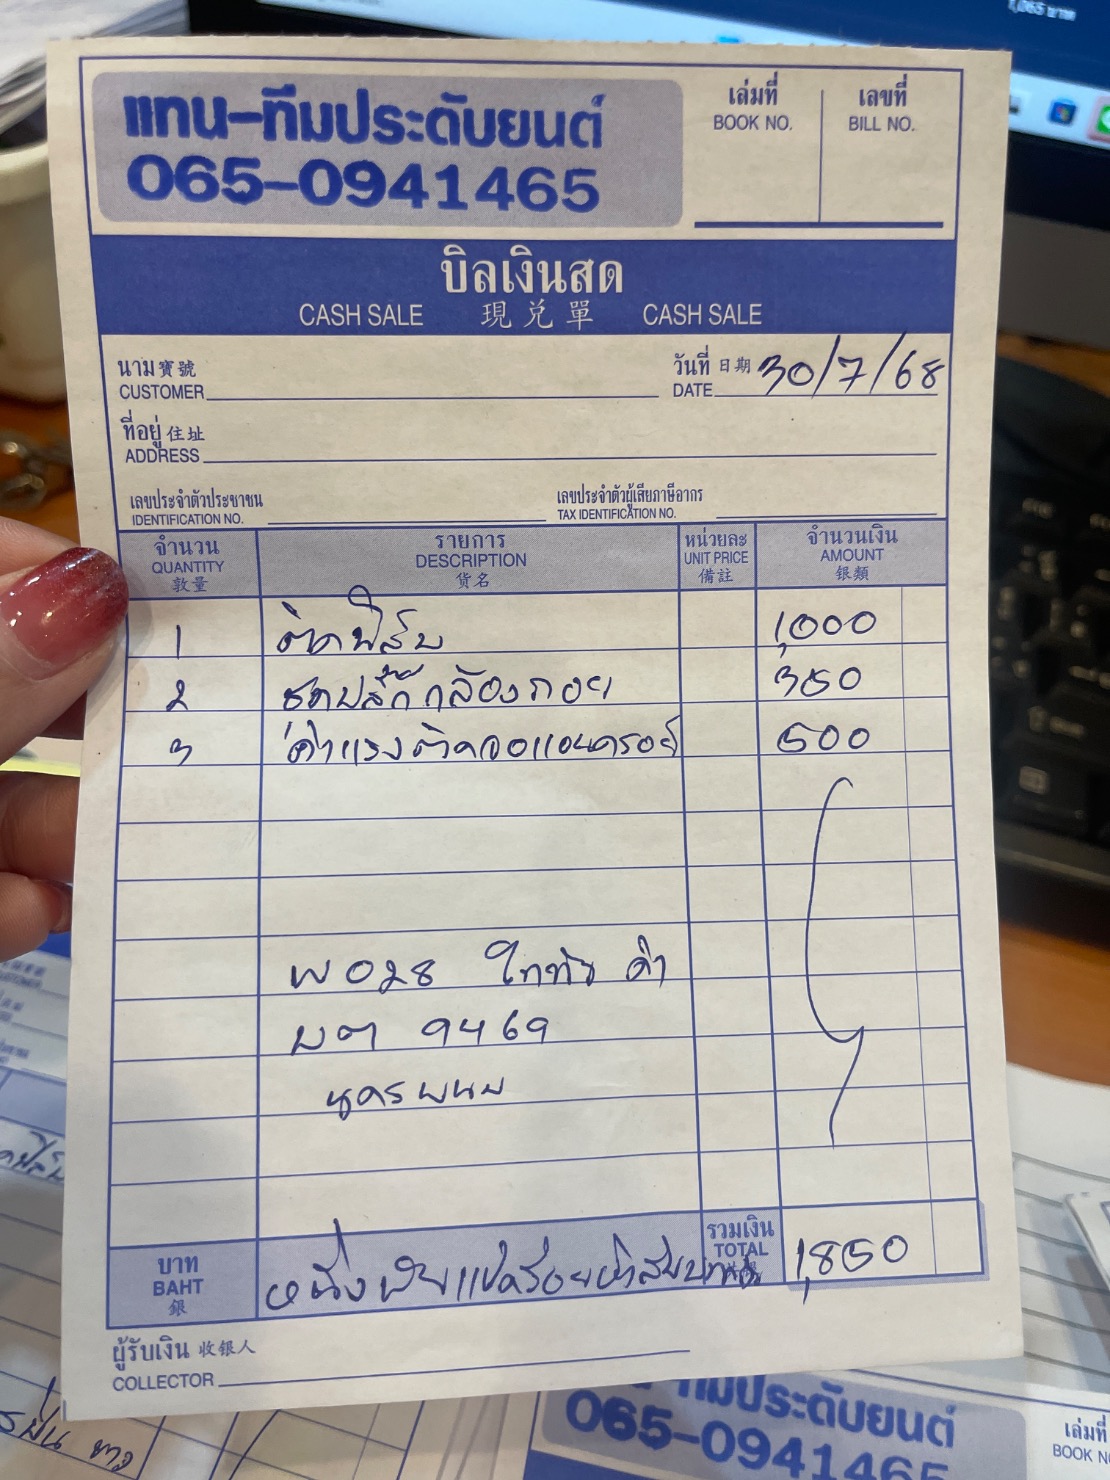 1,065 บาท
แทน-ทีมประดับยนต์
065-0941465
เล่มที่
BOOK NO.
เลขที่
BILL NO.
บิลเงินสด
CASH SALE 現兌單 CASH SALE
นาม 寶號
CUSTOMER
วันที่ 日期 30/7/68
DATE
ที่อยู่ 住址
ADDRESS
เลขประจำตัวประชาชน
IDENTIFICATION NO.
เลขประจำตัวผู้เสียภาษีอากร
TAX IDENTIFICATION NO.
จำนวน รายการ หน่วยละ จำนวนเงิน
QUANTITY DESCRIPTION UNIT PRICE AMOUNT
數量 貨名 備註 銀類
1 ติดฟิล์ม 1,000
2 ชุดปลั๊กกล้องถอย 350
3 ค่าแรงติดจอแอนดรอย์ 500
W028 ดำ
9469
นครพนม
บาท
BAHT
銀
หนึ่งพันแปดร้อยห้าสิบบาท
รวมเงิน
TOTAL
1,850
ผู้รับเงิน 收銀人
COLLECTOR
ทีมประดับยนต์
065-0941465
เล่มที่
BOOK NO